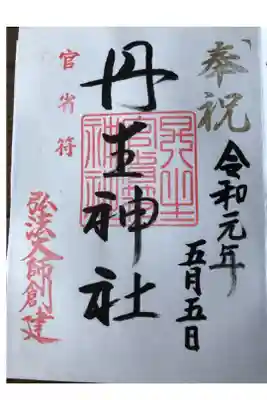 奉祝
令和元年
五月五日
丹生神社
官省符
弘法大師創建